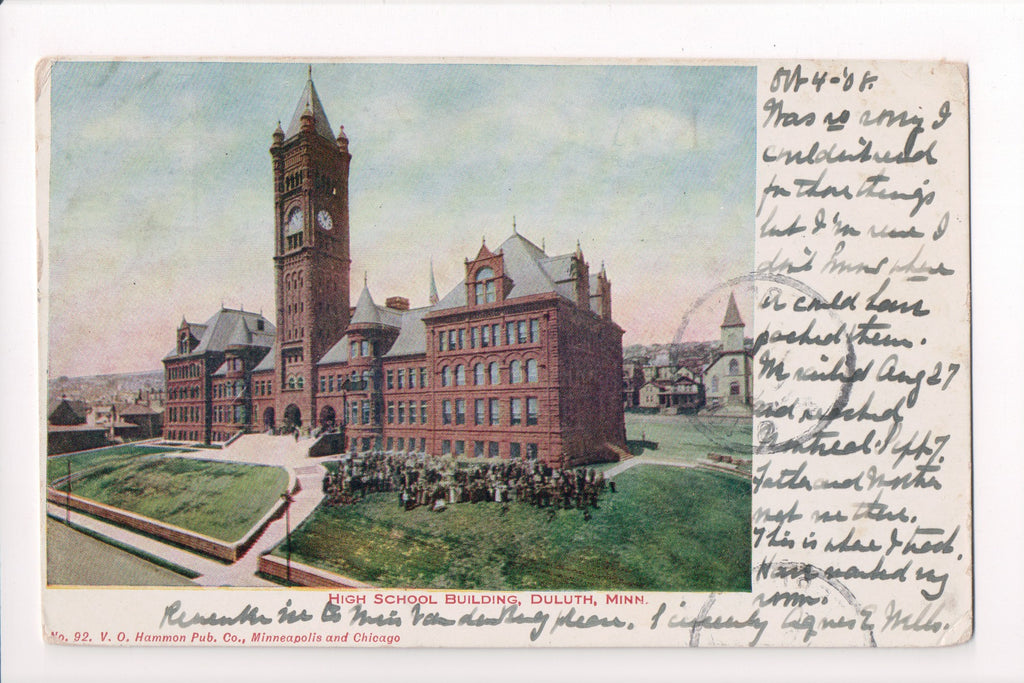 Oct 4-'08.
Was so sorry I
couldn't send
for those things
but I'm sure I
don't know where
we could have
packed them.
We sailed Aug 27
and reached
Montreal Sept 7.
Father and Mother
met me there.
This is where I teach.
Have marked my
room.
Remember me to Miss Vandenburg please. Sincerely Agnes E Wells.
HIGH SCHOOL BUILDING, DULUTH, MINN.
No. 92. V. O. Hammon Pub. Co., Minneapolis and Chicago